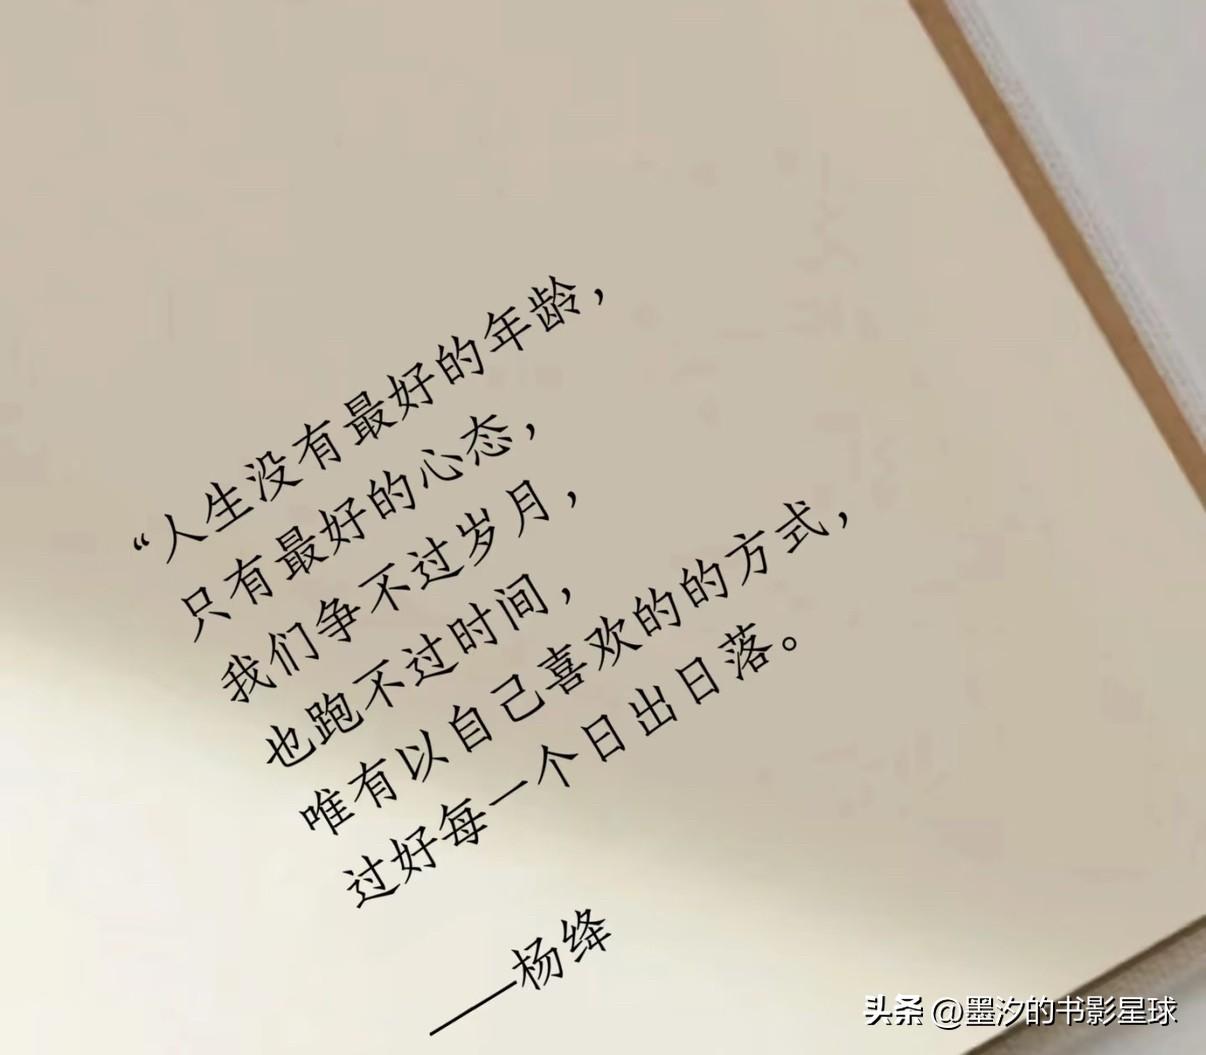 “人生没有最好的年龄，
只有最好的心态，
我们争不过岁月，
也跑不过时间，
唯有以自己喜欢的的方式，
过好每一个日出日落。
——杨绛
头条 @墨汐的书影星球